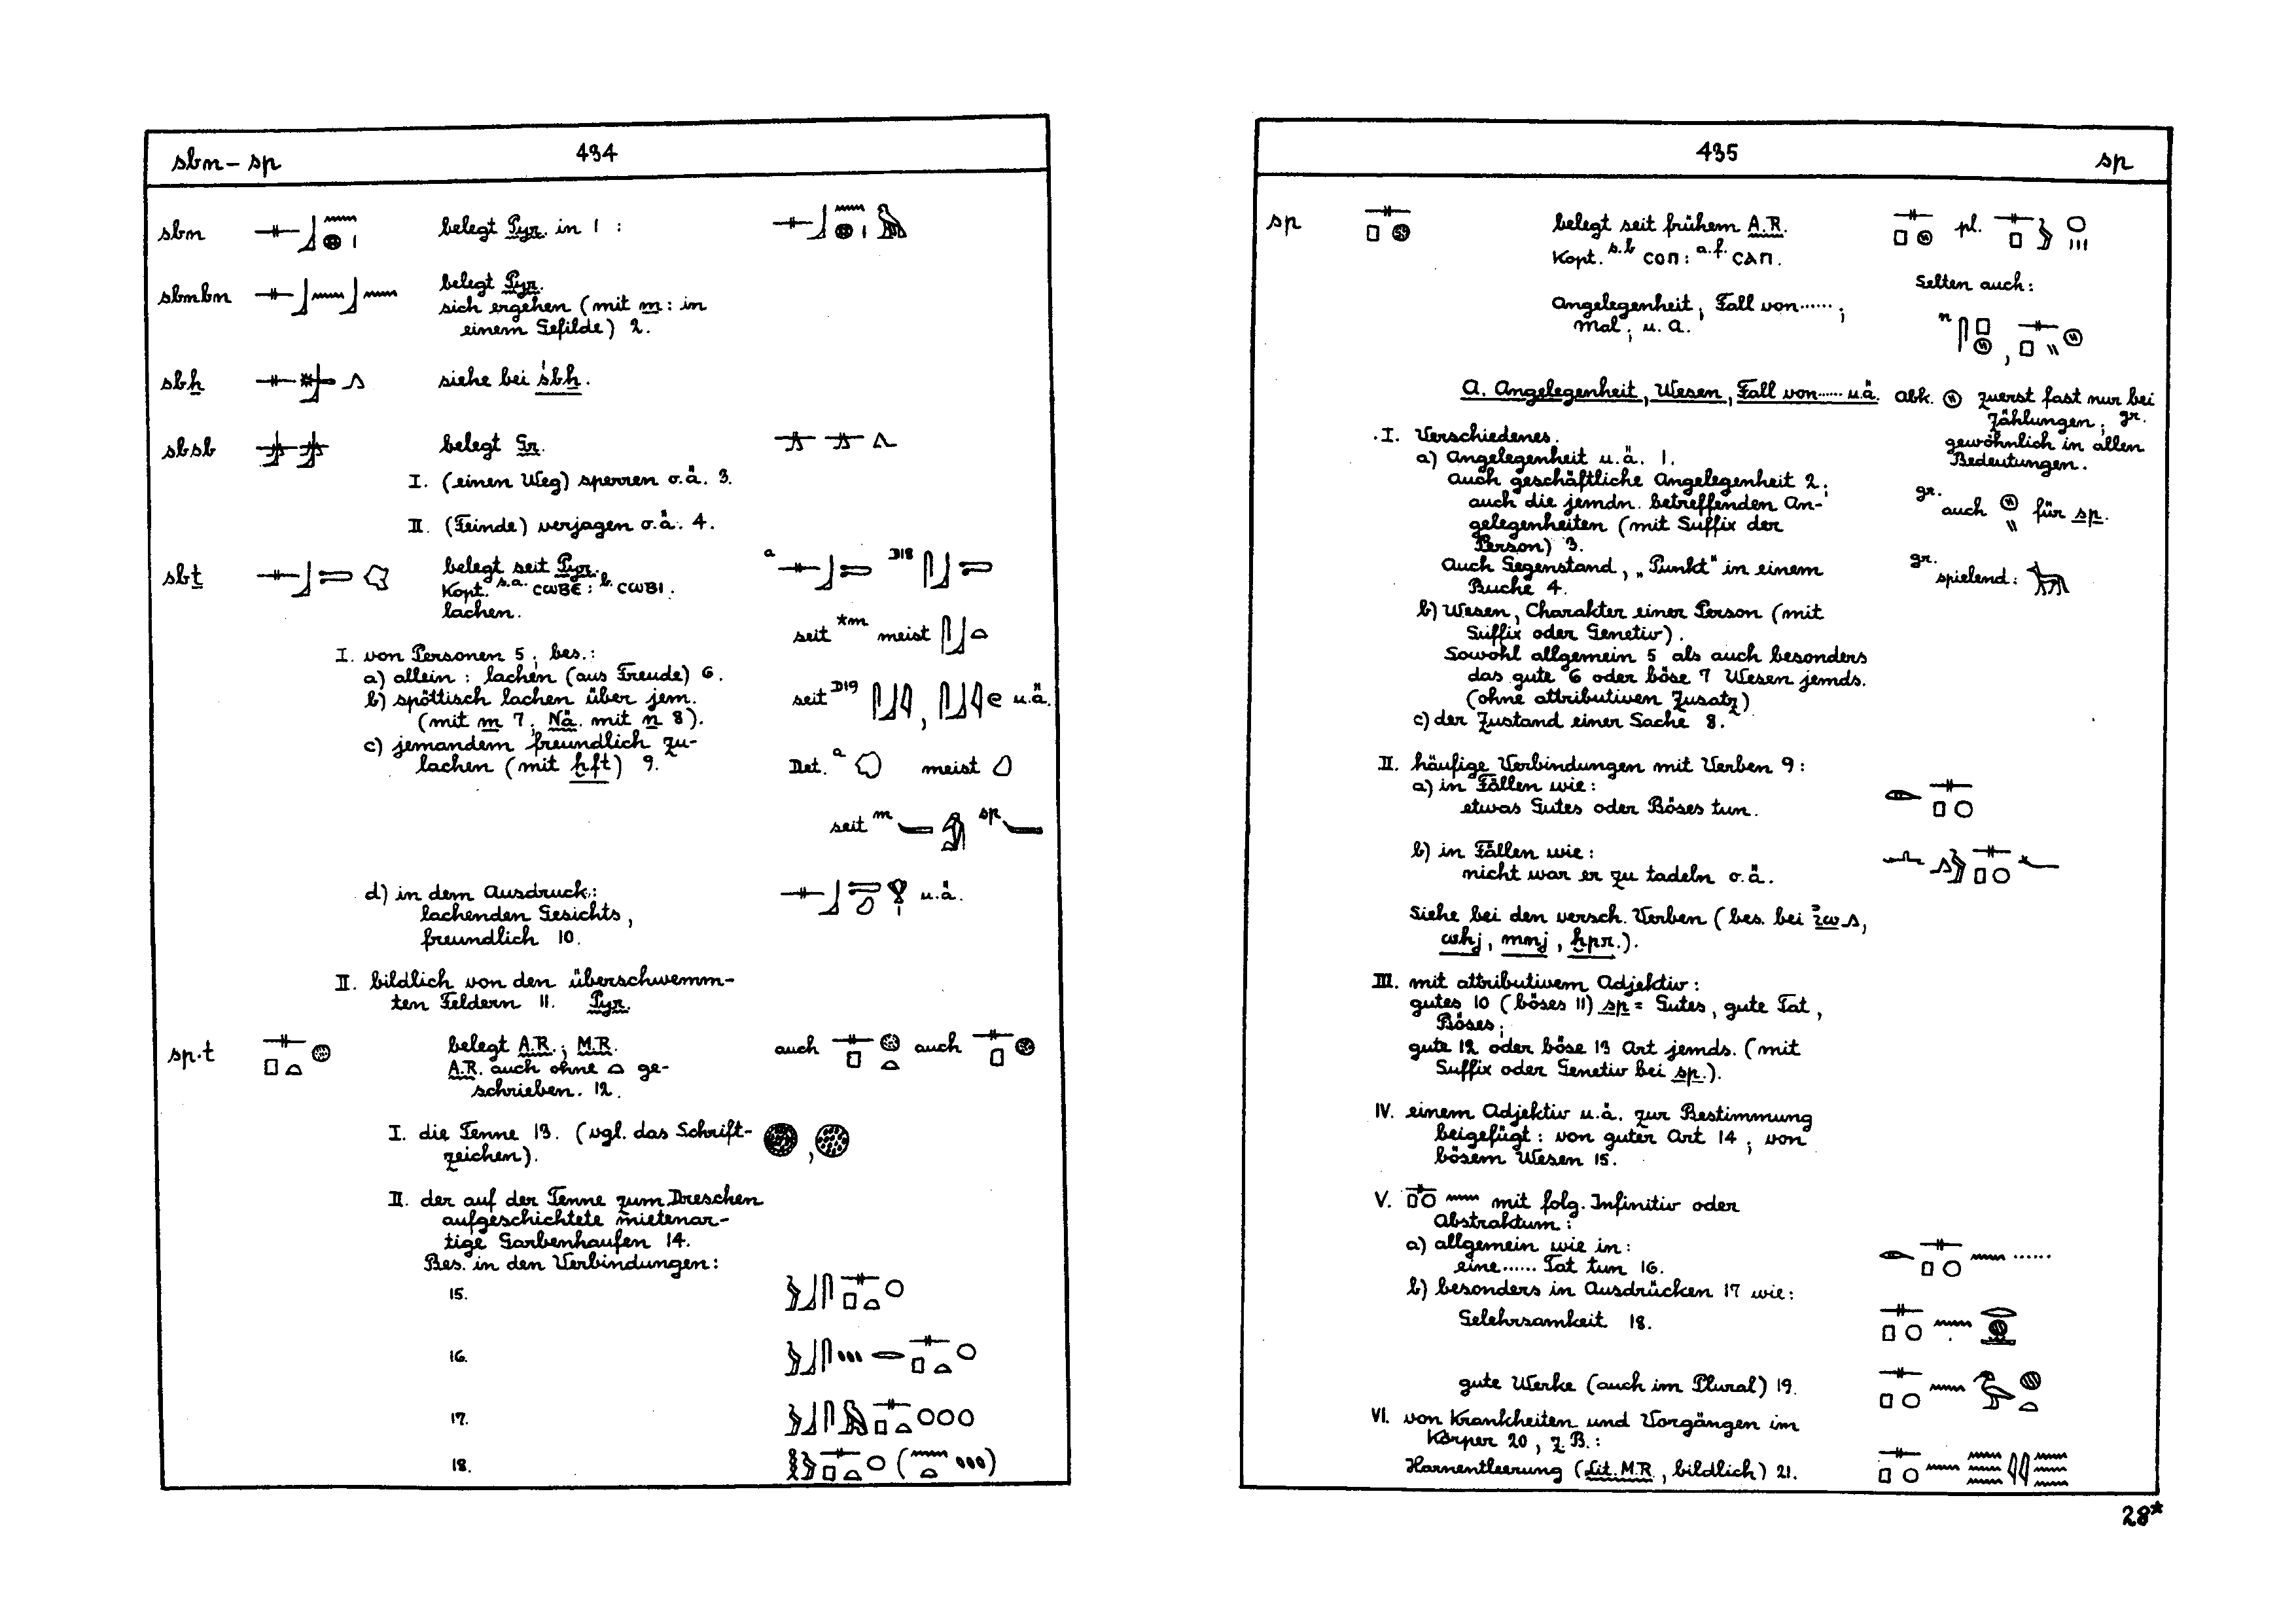 sbn – sp 434
sbn belegt Pyr. in 1 :
sbnbn belegt Pyr.
sich ergehen (mit m : in
einem Gefilde) 2.
sbẖ siehe bei śbẖ.
sbsb belegt Gr.
I. (einen Weg) sperren o.ä. 3.
II. (Feinde) verjagen o.ä. 4.
sbṯ belegt seit Pyr.
Kopt. s.a. ⲥⲱⲃⲉ : b. ⲥⲱⲃⲓ.
lachen.
a D18
seit *m meist
I. von Personen 5; bes.:
a) allein : lachen (aus Freude) 6.
b) spöttisch lachen über jem.
(mit m 7; Nä. mit n 8).
seit D19 , u.ä.
c) jemandem freundlich zu-
lachen (mit ḫft) 9.
Det. a meist
seit m sp
d) in dem Ausdruck:
lachenden Gesichts,
freundlich 10.
u.ä.
II. bildlich von den überschwemm-
ten Feldern 11. Pyr.
sp.t belegt A.R.; M.R.
A.R. auch ohne 𓏏 ge-
schrieben. 12.
auch auch
I. die Tenne 13. (vgl. das Schrift-
zeichen).
II. der auf der Tenne zum Dreschen
aufgeschichtete mietenar-
tige Garbenhaufen 14.
Bes. in den Verbindungen:
15.
16.
17.
18.
435 sp
sp belegt seit frühem A.R.
Kopt. s.b ⲥⲟⲡ : a.f. ⲥⲁⲡ.
pl.
Angelegenheit, Fall von ......;
Mal; u. a.
Selten auch:
n ,
A. Angelegenheit, Wesen, Fall von ...... u.ä.
abk. zuerst fast nur bei
Zählungen; gr.
gewöhnlich in allen
Bedeutungen.
gr. auch für sp.
gr. spielend:
I. Verschiedenes.
a) Angelegenheit u.ä. 1.
Auch geschäftliche Angelegenheit 2;
auch die jemdn. betreffenden An-
gelegenheiten (mit Suffix der
Person) 3.
Auch Gegenstand, „Punkt" in einem
Buche 4.
b) Wesen, Charakter einer Person (mit
Suffix oder Genetiv).
Sowohl allgemein 5 als auch besonders
das gute 6 oder böse 7 Wesen jemds.
(ohne attributiven Zusatz)
c) der Zustand einer Sache 8.
II. häufige Verbindungen mit Verben 9:
a) in Fällen wie:
etwas Gutes oder Böses tun.
b) in Fällen wie:
nicht war er zu tadeln o.ä.
Siehe bei den versch. Verben (bes. bei ꜣws,
whj, mnj, ḫpr.).
III. mit attributivem Adjektiv:
gutes 10 (böses 11) sp = Gutes, gute Tat,
Böses;
gute 12 oder böse 13 Art jemds. (mit
Suffix oder Genetiv bei sp.).
IV. einem Adjektiv u.ä. zur Bestimmung
beigefügt : von guter Art 14; von
bösem Wesen 15.
V. 𓊃𓊪𓊗 𓈖 mit folg. Infinitiv oder
Abstraktum:
a) allgemein wie in:
eine ...... Tat tun 16. ......
b) besonders in Ausdrücken 17 wie:
Gelehrsamkeit 18.
gute Werke (auch im Plural) 19.
VI. von Krankheiten und Vorgängen im
Körper 20, z.B.:
Harnentleerung (Lit. M.R., bildlich) 21.
28*